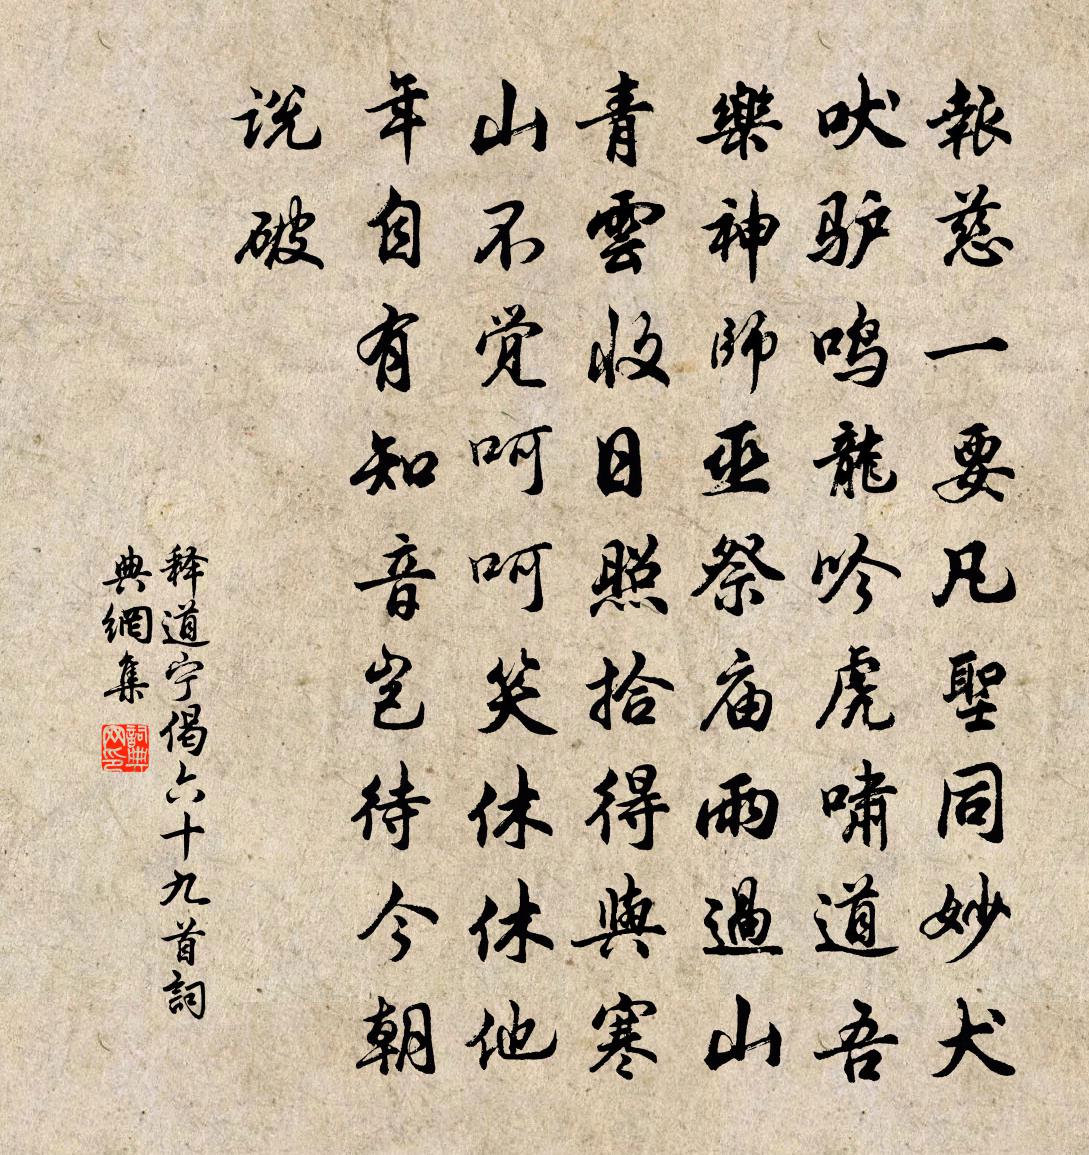 報慈一要凡聖同妙犬
吠驴鸣龍吟虎嘯道吾
樂神師巫祭庙雨過山
青雲收日照拾得與寒
山不觉呵呵笑休休他
年自有知音岂待今朝
说破
释道宁偈六十九首詞
典網集
詞典
网印